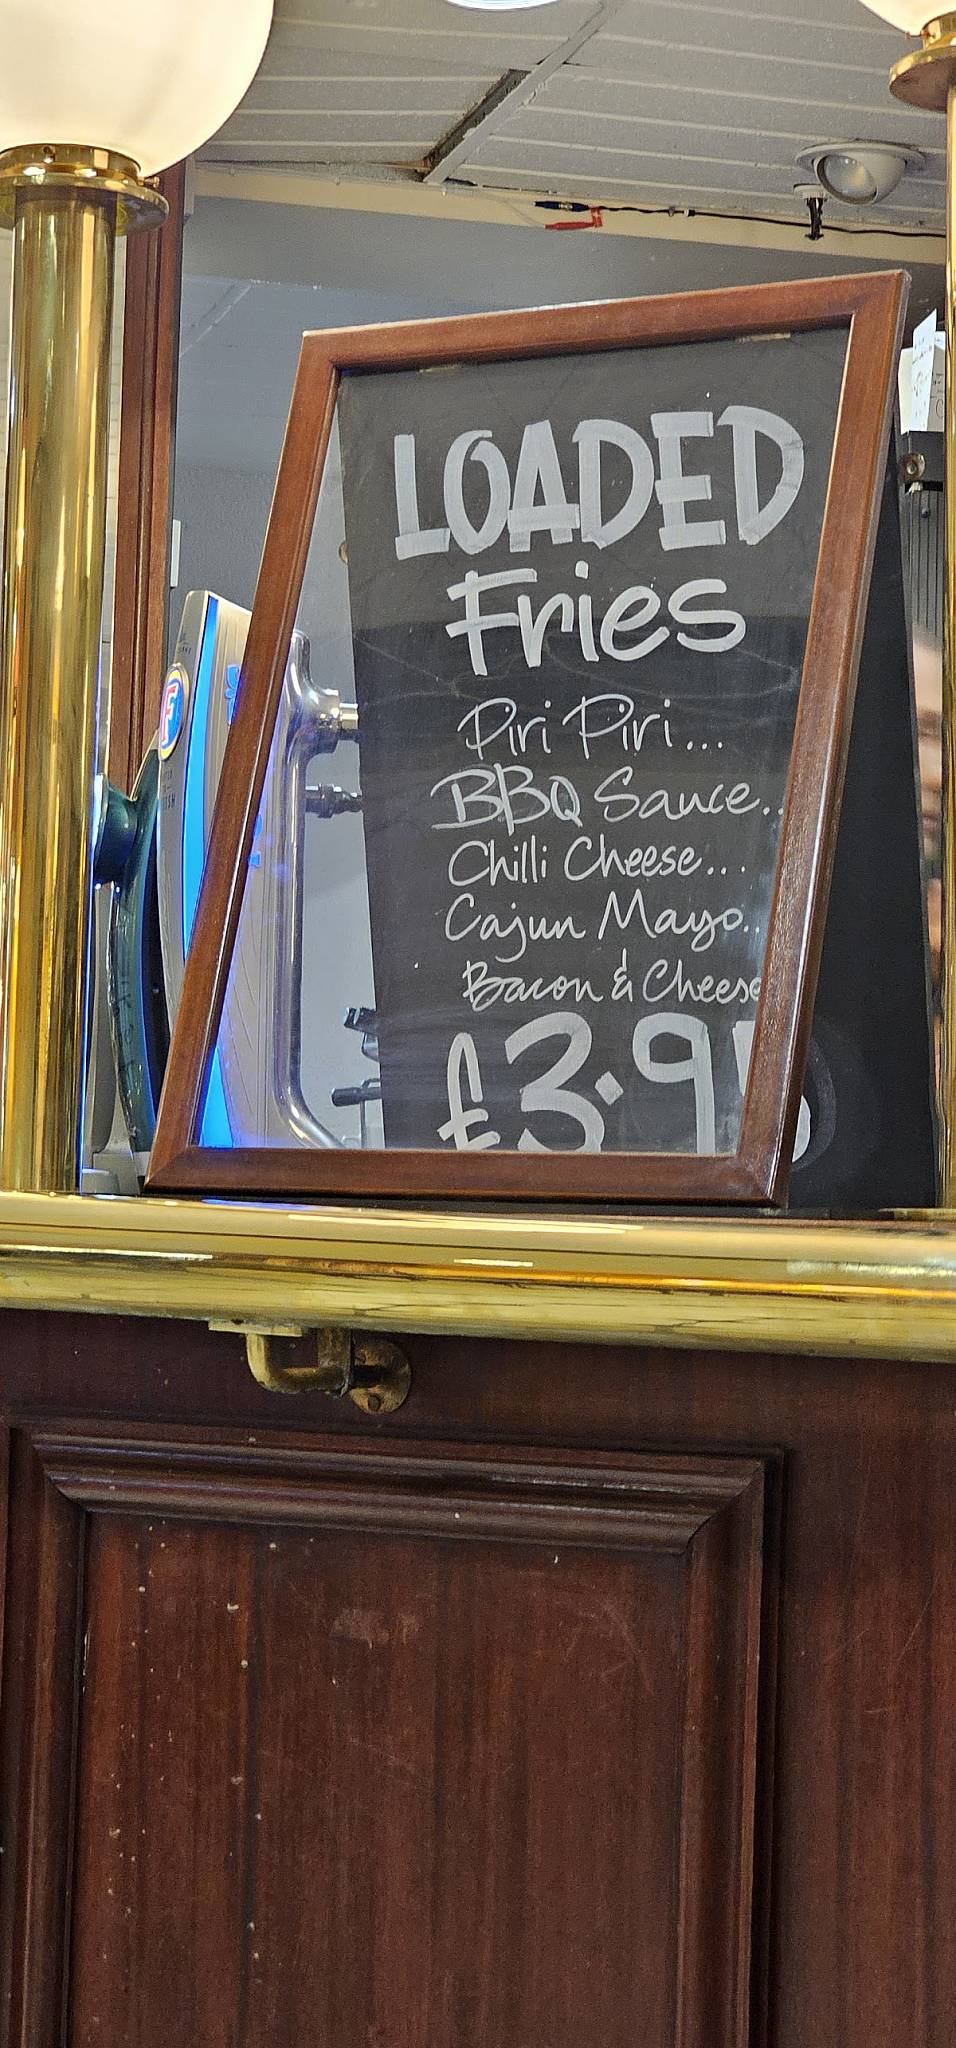 LOADED
Fries
Piri Piri...
BBQ Sauce..
Chilli Cheese...
Cajun Mayo..
Bacon & Cheese
£3.95
F